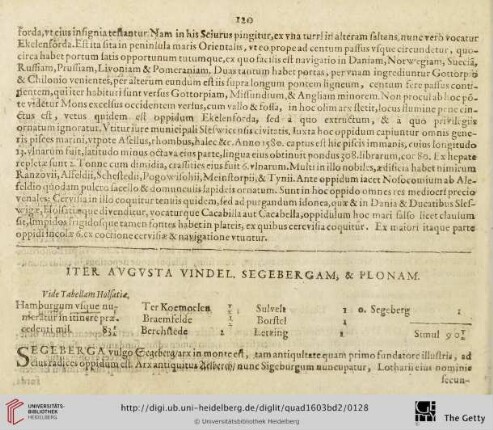 120
forda, vt eius insignia testantur. Nam in his Sciurus pingitur, ex vna turri in alteram saltans, nunc verb vocatur
Ekelenforda. Est ita sita in peninsula maris Orientalis, vt eo prope ad centum passus vsque circundetur, quo-
circa habet portum satis opportunum tutumque, ex quo facilis est navigatio in Daniam, Norwegiam, Sueciã,
Russiam, Prussiam, Livoniam & Pomeraniam. Duas tantum habet portas, per vnam ingrediuntur Gottorpio
& Chilonio venientes, per alterum eundum est iis supra longum pontem ligneum, centum fere passus conti-
gentem, qui iter habituri sunt versus Gottorpiam, Missundium, & Angliam minorem. Non procul ab hoc põ-
te videtur Mons excelsus occidentem versus, cum vallo & fossa, in hoc olim arx stetit, locus
ctus est, vetus quidem est oppidum Ekelenforda, sed a quo extructum, & a quo privilegiis
ornatum ignoratur. Vtitur iure municipali Sleswicensis civitatis. Iuxta hoc oppidum capiuntur omnis gene-
ris pisces marini, vtpote Asellus, rhombus, halec &c. Anno 1580. captus est hic piscis immanis, cuius longitudo
13. vlnarum fuit, latitudo minus octava eius parte, lingua eius obtinuit pondus 308. librarum, cor 80. Ex hepate
repleta sunt 2. Tonne cum dimidia, crassities eius fuit 6. vlnarum. Multi in illo nobiles, ædificia habet nimirum
Ranzovii, Alfeldii, Schestedii, Pogowischii, Meinstorpii, & Tynii. Ante oppidum iacet Nosocomium ab Ale-
feldio quodam pulcro sacello & domunculis lapideis ornatum. Sunt in hoc oppido omnes res mediocri precio
venales: Cervisia in illo coquitur tenuis quidem, sed ad purgandum idonea, quæ & in Dania & Ducatibus Sles-
wigæ, Holsatiæque divenditur, vocaturque Cacabilla aut Cacabella, oppidulum hoc mari salso licet clausum
sit, limpidos frigidosque tamen fontes habet in plateis, ex quibus cerevisia coquitur. Ex maiori itaque parte
oppidi incolæ 6. ex coctione cervisiæ & navigatione vtuntur.
ITER AVGVSTA VINDEL. SEGEBERGAM, & PLONAM.
Vide Tabellam Holsatiæ,
Hamburgum vsque nu-
meratur in itinere præ-
cedenti mil. 83
Ter Koemoelen
Braemfelde
Berchstede 1
Sulvelt 1
Borstel 1
Letzing 1
o. Segeberg 1
Simul 90
SEGEBERGA vulgo Segeberg/ arx in monte est, tam antiquitate quam primo fundatore illustris, ad
eius radices oppidum est. Arx antiquitus nunc Sigeburgum nuncupatur, Lotharii eius nominis
secun-
http://digi.ub.uni-heidelberg.de/diglit/quad1603bd2/0128
© Universitätsbibliothek Heidelberg
UNIVERSITÄTS-
BIBLIOTHEK
HEIDELBERG
The Getty